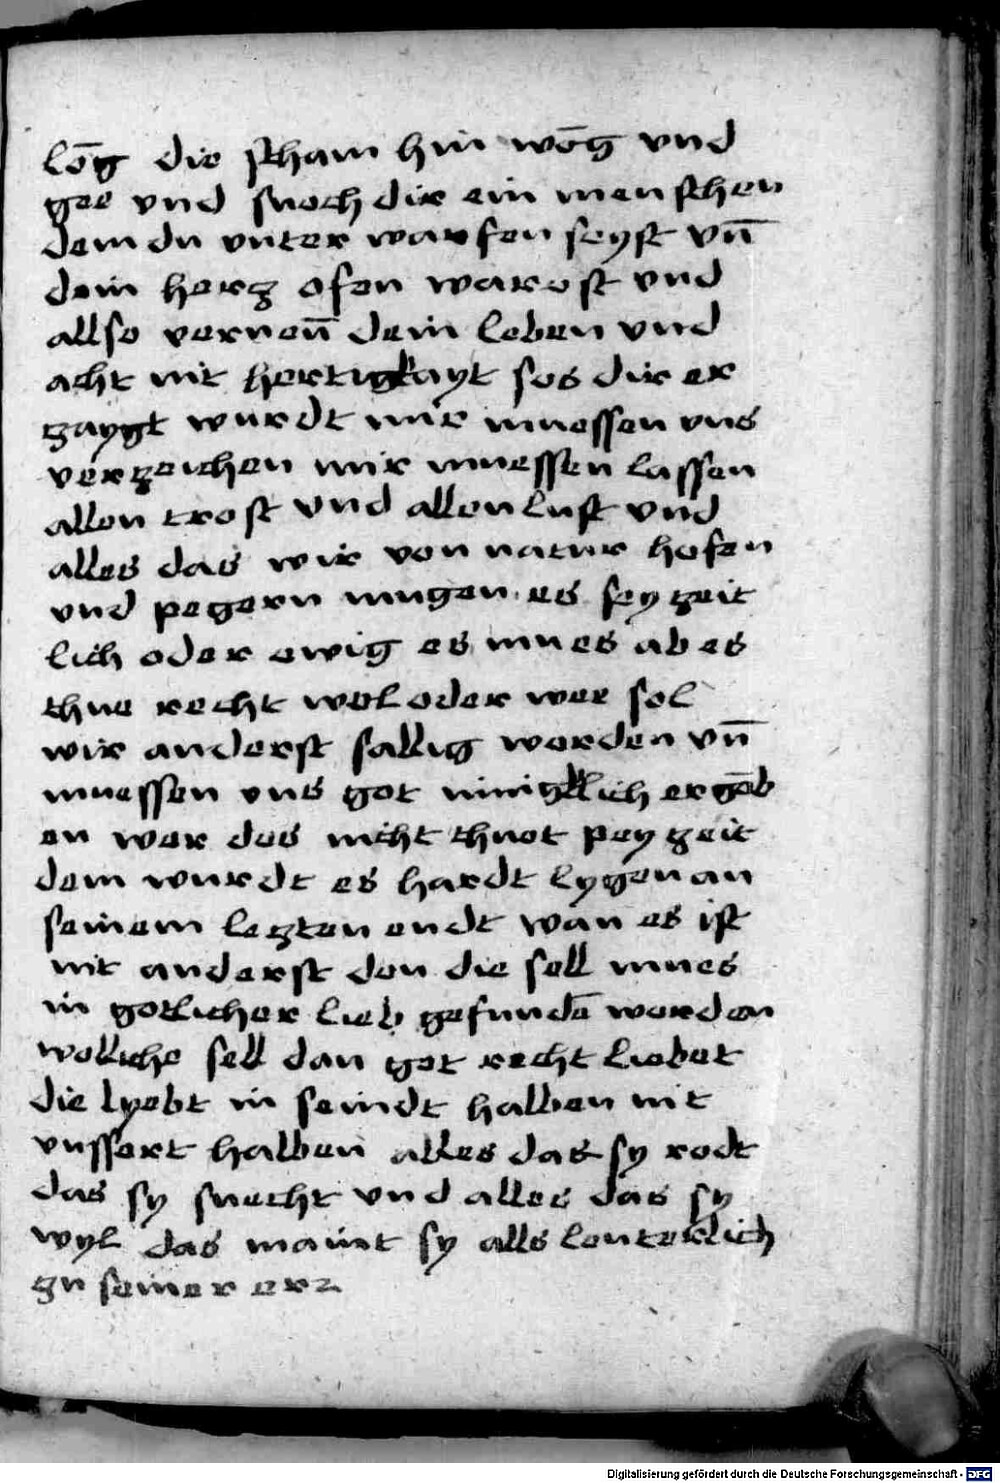 lōg die scham hin wōg vnd
gee vnd suoch dir ein menschen
dem du vnter warfen seyst vn̄
dem herz ofen warest vnd
allso verneu̅ dein leben vnd
acht nit hertigkayt sos dir er
zaygt wurdt mir muessen vns
verzeichen mir muessen lassen
allen trost vnd allen lust vnd
alles das wir von natur hofen
vnd pegern mugen es sey zeit
lich oder ewig es mues ab es
thue recht wol oder wee sol
wir anderst sallig werden vn̄
muessen vns got innigklich ergēb
en wer des nicht thuet pey zeit
dem wurdt es hardt lygen an
seinem lezten endt wan es ist
nit anderst den die sell mues
in gotlicher lieb gefundē werden
wolliche sell dan got recht liebet
die lyebt in seindt halben nit
vnssert halben alles das sy redt
das sy suecht vnd alles das sy
wyl das maint sy alls leuterlich
zu seiner er
Digitalisierung gefördert durch die Deutsche Forschungsgemeinschaft - DFG